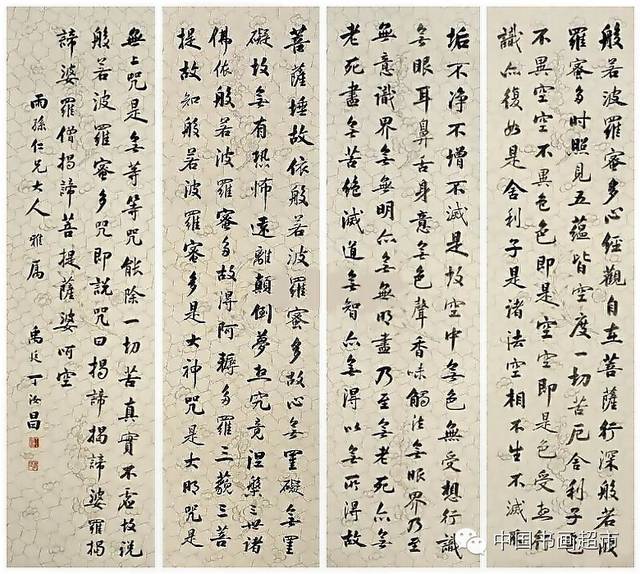 般若波羅蜜多心經觀自在菩薩行深般若波
羅蜜多時照見五蘊皆空度一切苦厄舍利子色
不異空空不異色色即是空空即是色受想行
識亦復如是舍利子是諸法空相不生不滅不
垢不净不增不滅是故空中無色無受想行識
無眼耳鼻舌身意無色聲香味觸法無眼界乃至
無意識界無無明亦無無明盡乃至無老死亦無
老死盡無苦絕滅道無智亦無得以無所得故
菩薩埵故依般若波羅蜜多故心無罣礙無罣
礙故無有恐怖遠離顛倒夢想究竟涅槃三世諸
佛依般若波羅蜜多故得阿耨多羅三藐三菩
提故知般若波羅蜜多是大神咒是大明咒是
無上咒是無等等咒能除一切苦真實不虛故說
般若波羅蜜多咒即說咒曰揭諦揭諦婆羅揭
諦婆羅僧揭諦菩提薩婆呵空
雨孫仁兄大人 雅屬
禹廷丁汝昌
中国书画超市